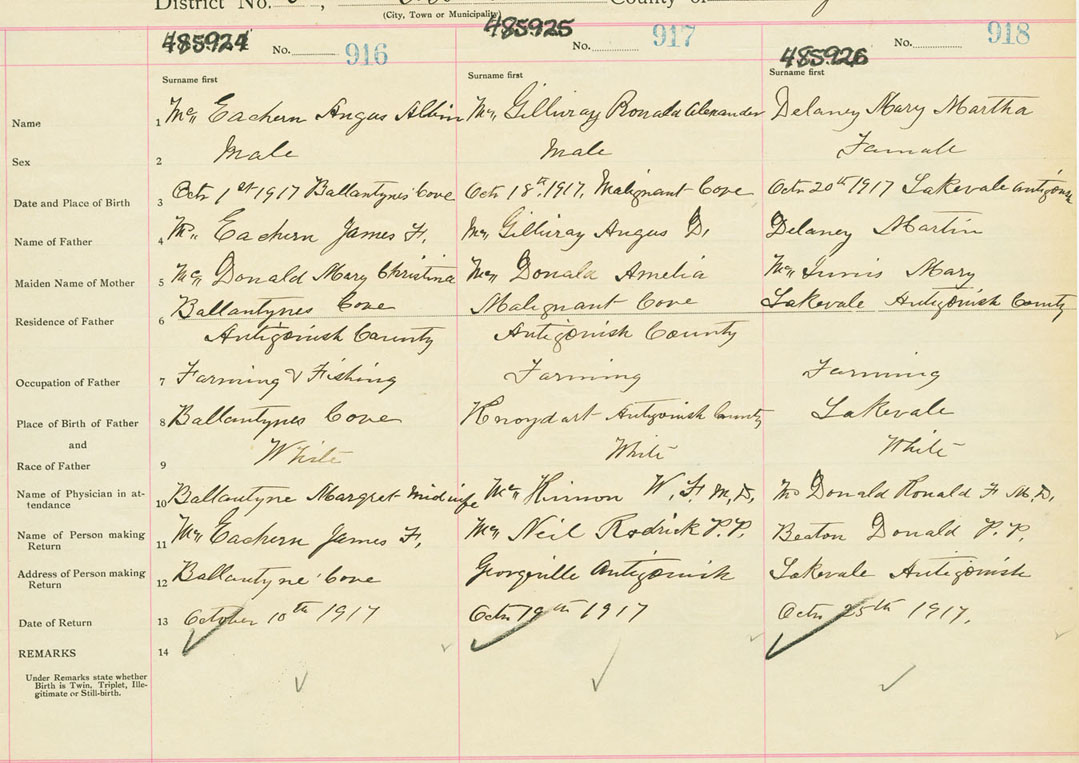 District No. , County of
(City, Town or Municipality)
485924 No. 916 485925 No. 917 485926 No. 918
Surname first Surname first Surname first
Name 1 Mc Eachern Angus Albin Mc Gillivray Ronald Alexander Delaney Mary Martha
Sex 2 Male Male Famale
Date and Place of Birth 3 Octr 1st 1917 Ballantynes Cove Octr 18th 1917, Malignant Cove Octr 20th 1917 Lakevale
Name of Father 4 Mc Eachern James F. Mc Gillivray Angus D. Delaney Martin
Maiden Name of Mother 5 Mc Donald Mary Christina Mc Donald Amelia Mc Innis Mary
Residence of Father 6 Ballantynes Cove Malignant Cove Lakevale Antigonish County
Antigonish County Antigonish County
Occupation of Father 7 Farming & Fishing Farming Farming
Place of Birth of Father 8 Ballantynes Cove Knoydart Antigonish County Lakevale
and
Race of Father 9 White White White
Name of Physician in at-
tendance 10 Ballantyne Margret midwife Mc Kinnon W. F. M.D. Mc Donald Ronald F. M.D.
Name of Person making
Return 11 Mc Eachern James F. Mc Neil Rodrick P.P. Beaton Donald P.P.
Address of Person making
Return 12 Ballantyne Cove Georgeville Antigonish Lakevale Antigonish
Date of Return 13 October 10th 1917 Octr 19th 1917 Octr 25th 1917.
REMARKS 14
Under Remarks state whether
Birth is Twin, Triplet, Ille-
gitimate or Still-birth.